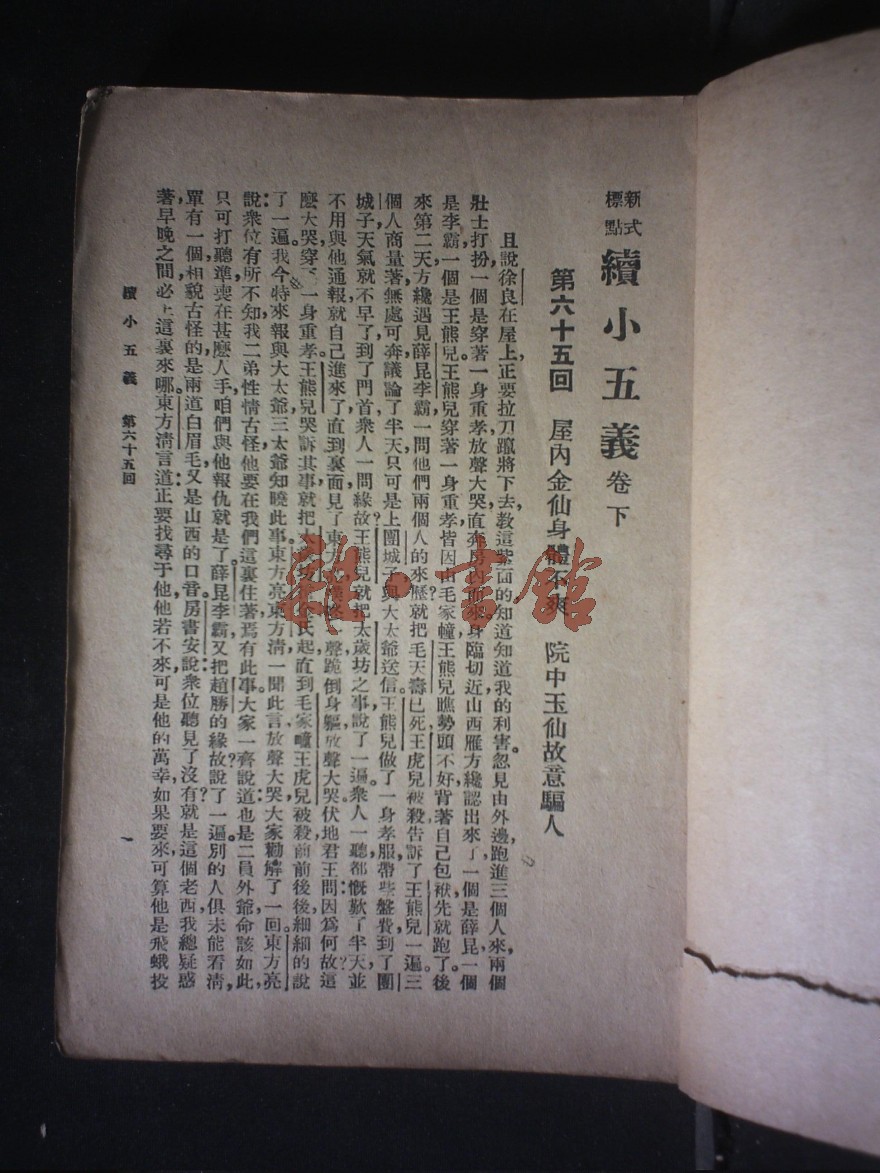 新式標點 續小五義 卷下
第六十五回 屋內金仙身體不爽 院中玉仙故意騙人
且說徐良在屋上，正要拉刀躥將下去，教這紫面的知道知道我的利害。忽見由外邊跑進三個人來，兩個
壯士打扮，一個是穿著一身重孝，放聲大哭，直奔房 身臨切近，山西雁方纔認出來了，一個是薛昆，一個
是李霸，一個是王熊兒。王熊兒穿著一身重孝，皆因由毛家疃，王熊兒瞧勢頭不好，背著自己包袱先就跑了。後
來第二天方纔遇見薛昆李霸，一問他們兩個人的來歷，就把毛天壽已死，王虎兒被殺，告訴了王熊兒一遍。三
個人商量著無處可奔，議論了半天，只可是上團城子與大太爺送信。王熊兒做了一身孝服，帶些盤費，到了團
城子，天氣就不早了，到了門首，眾人一問緣故，王熊兒就把太歲坊之事說了一遍。眾人一聽，都慨歎了半天，並
不用與他通報，就自己進來了，直到裏面，見了東方 聲跪倒身軀，放聲大哭。伏地君王問：因爲何故這
麼大哭，穿 一身重孝？王熊兒哭訴其事，就把太歲 氏起，直到毛家疃王虎兒被殺，前前後後，細細的說
了一遍。我今特來報與大太爺三太爺知曉此事。東方亮東方清一聞此言，放聲大哭，大家勸解了一回。東方亮
說：眾位有所不知，我二弟性情古怪，他要在我們這裏住著，焉有此事。大家一齊說道：也是二員外爺命該如此，
只可打聽準喪在甚麼人手，咱們與他報仇就是了。薛昆李霸又把趙勝的緣故說了一遍。別的人俱未能看清，
單有一個相貌古怪的，是兩道白眉毛，又是山西的口音。房書安說：眾位聽見了沒有？就是這個老西，我總疑惑
著早晚之間，必上這裏來哪。東方清言道：正要找尋于他，他若不來，可是他的萬幸，如果要來，可算他是飛蛾投
續小五義 第六十五回
一
雜·書館